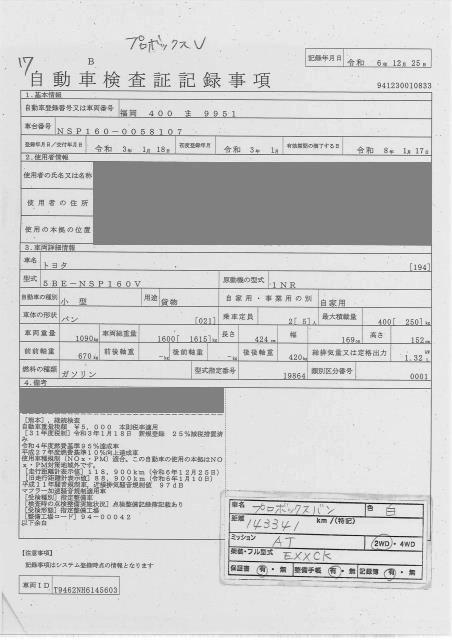 プロボックスV
17
B
記録年月日 令和 6年 12月 25日
自動車検査証記録事項
941230010833
1.基本情報
自動車登録番号又は車両番号 福岡 400 ま 9951
車台番号 NSP160-0058107
登録年月日/交付年月日 令和 3年 1月 18日 初度登録年月 令和 3年 1月 有効期間の満了する日 令和 8年 1月 17日
2.使用者情報
使用者の氏名又は名称
使用者の住所
使用の本拠の位置
3.車両詳細情報
車名 トヨタ [194]
型式 5BE-NSP160V 原動機の型式 1NR
自動車の種別 小型 用途 貨物 自家用・事業用の別 自家用
車体の形状 バン [021] 乗車定員 2[ 5]人 最大積載量 400[ 250]kg
車両重量 1090kg 車両総重量 1600[ 1615]kg 長さ 424cm 幅 169cm 高さ 152cm
前前軸重 670kg 前後軸重 -kg 後前軸重 -kg 後後軸重 420kg 総排気量又は定格出力 1.32
燃料の種類 ガソリン 型式指定番号 19864 類別区分番号 0001
4.備考
[熊本],継続検査
自動車重量税額 ¥5,000 本則税率適用
[31年度税制]令和3年1月18日 新規登録 25%減税措置済
み
令和4年度燃費基準95%達成車
平成27年度燃費基準10%向上達成車
使用車種規制(NOx・PM)適合、この自動車の使用の本拠はNO
x・PM対策地域外です。
[走行距離計表示値]118,900km(令和6年12月25日)
[旧走行距離計表示値]88,900km(令和6年1月10日)
平成11年騒音規制車、近接排気騒音規制値 97dB
マフラー加速騒音規制適用車
[受検種別]指定整備車
[検査時の点検整備実施状況]点検整備記録簿記載あり
[受検形態]指定整備工場
[整備工場コード]94-00042
以下余白
車名 プロボックスバン 色 白
距離 143341 km/(特記)
ミッション AT 2WD・4WD
架装・フル型式 EXXCK
保証書 有・無 整備手帳 有・無 記録簿 有・無
【注意事項】
記録事項はシステム登録時点の情報となります
車両ID T9462NH6145603